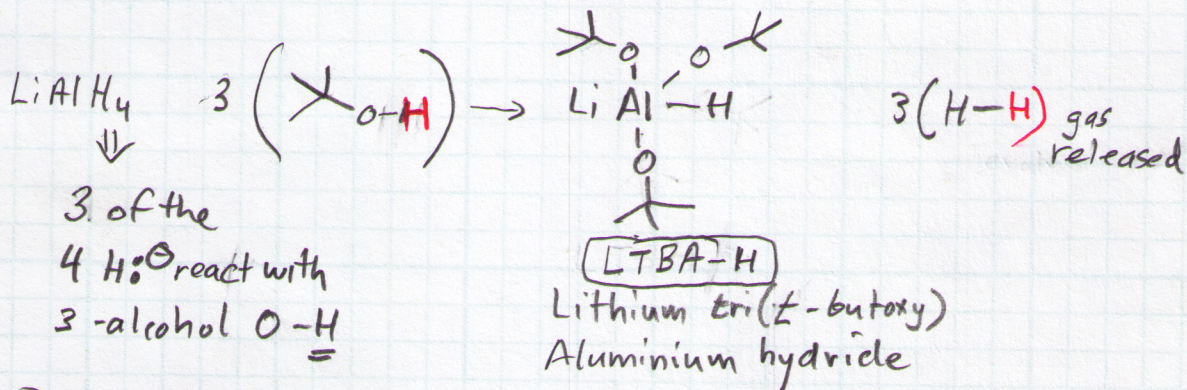 LiAlH4 3 ( O-H ) → Li Al-H O O O 3(H-H) gas released
⇓
3 of the
4 H:⊖ react with
3 -alcohol O-H
LTBA-H
Lithium tri(t-butoxy)
Aluminium hydride